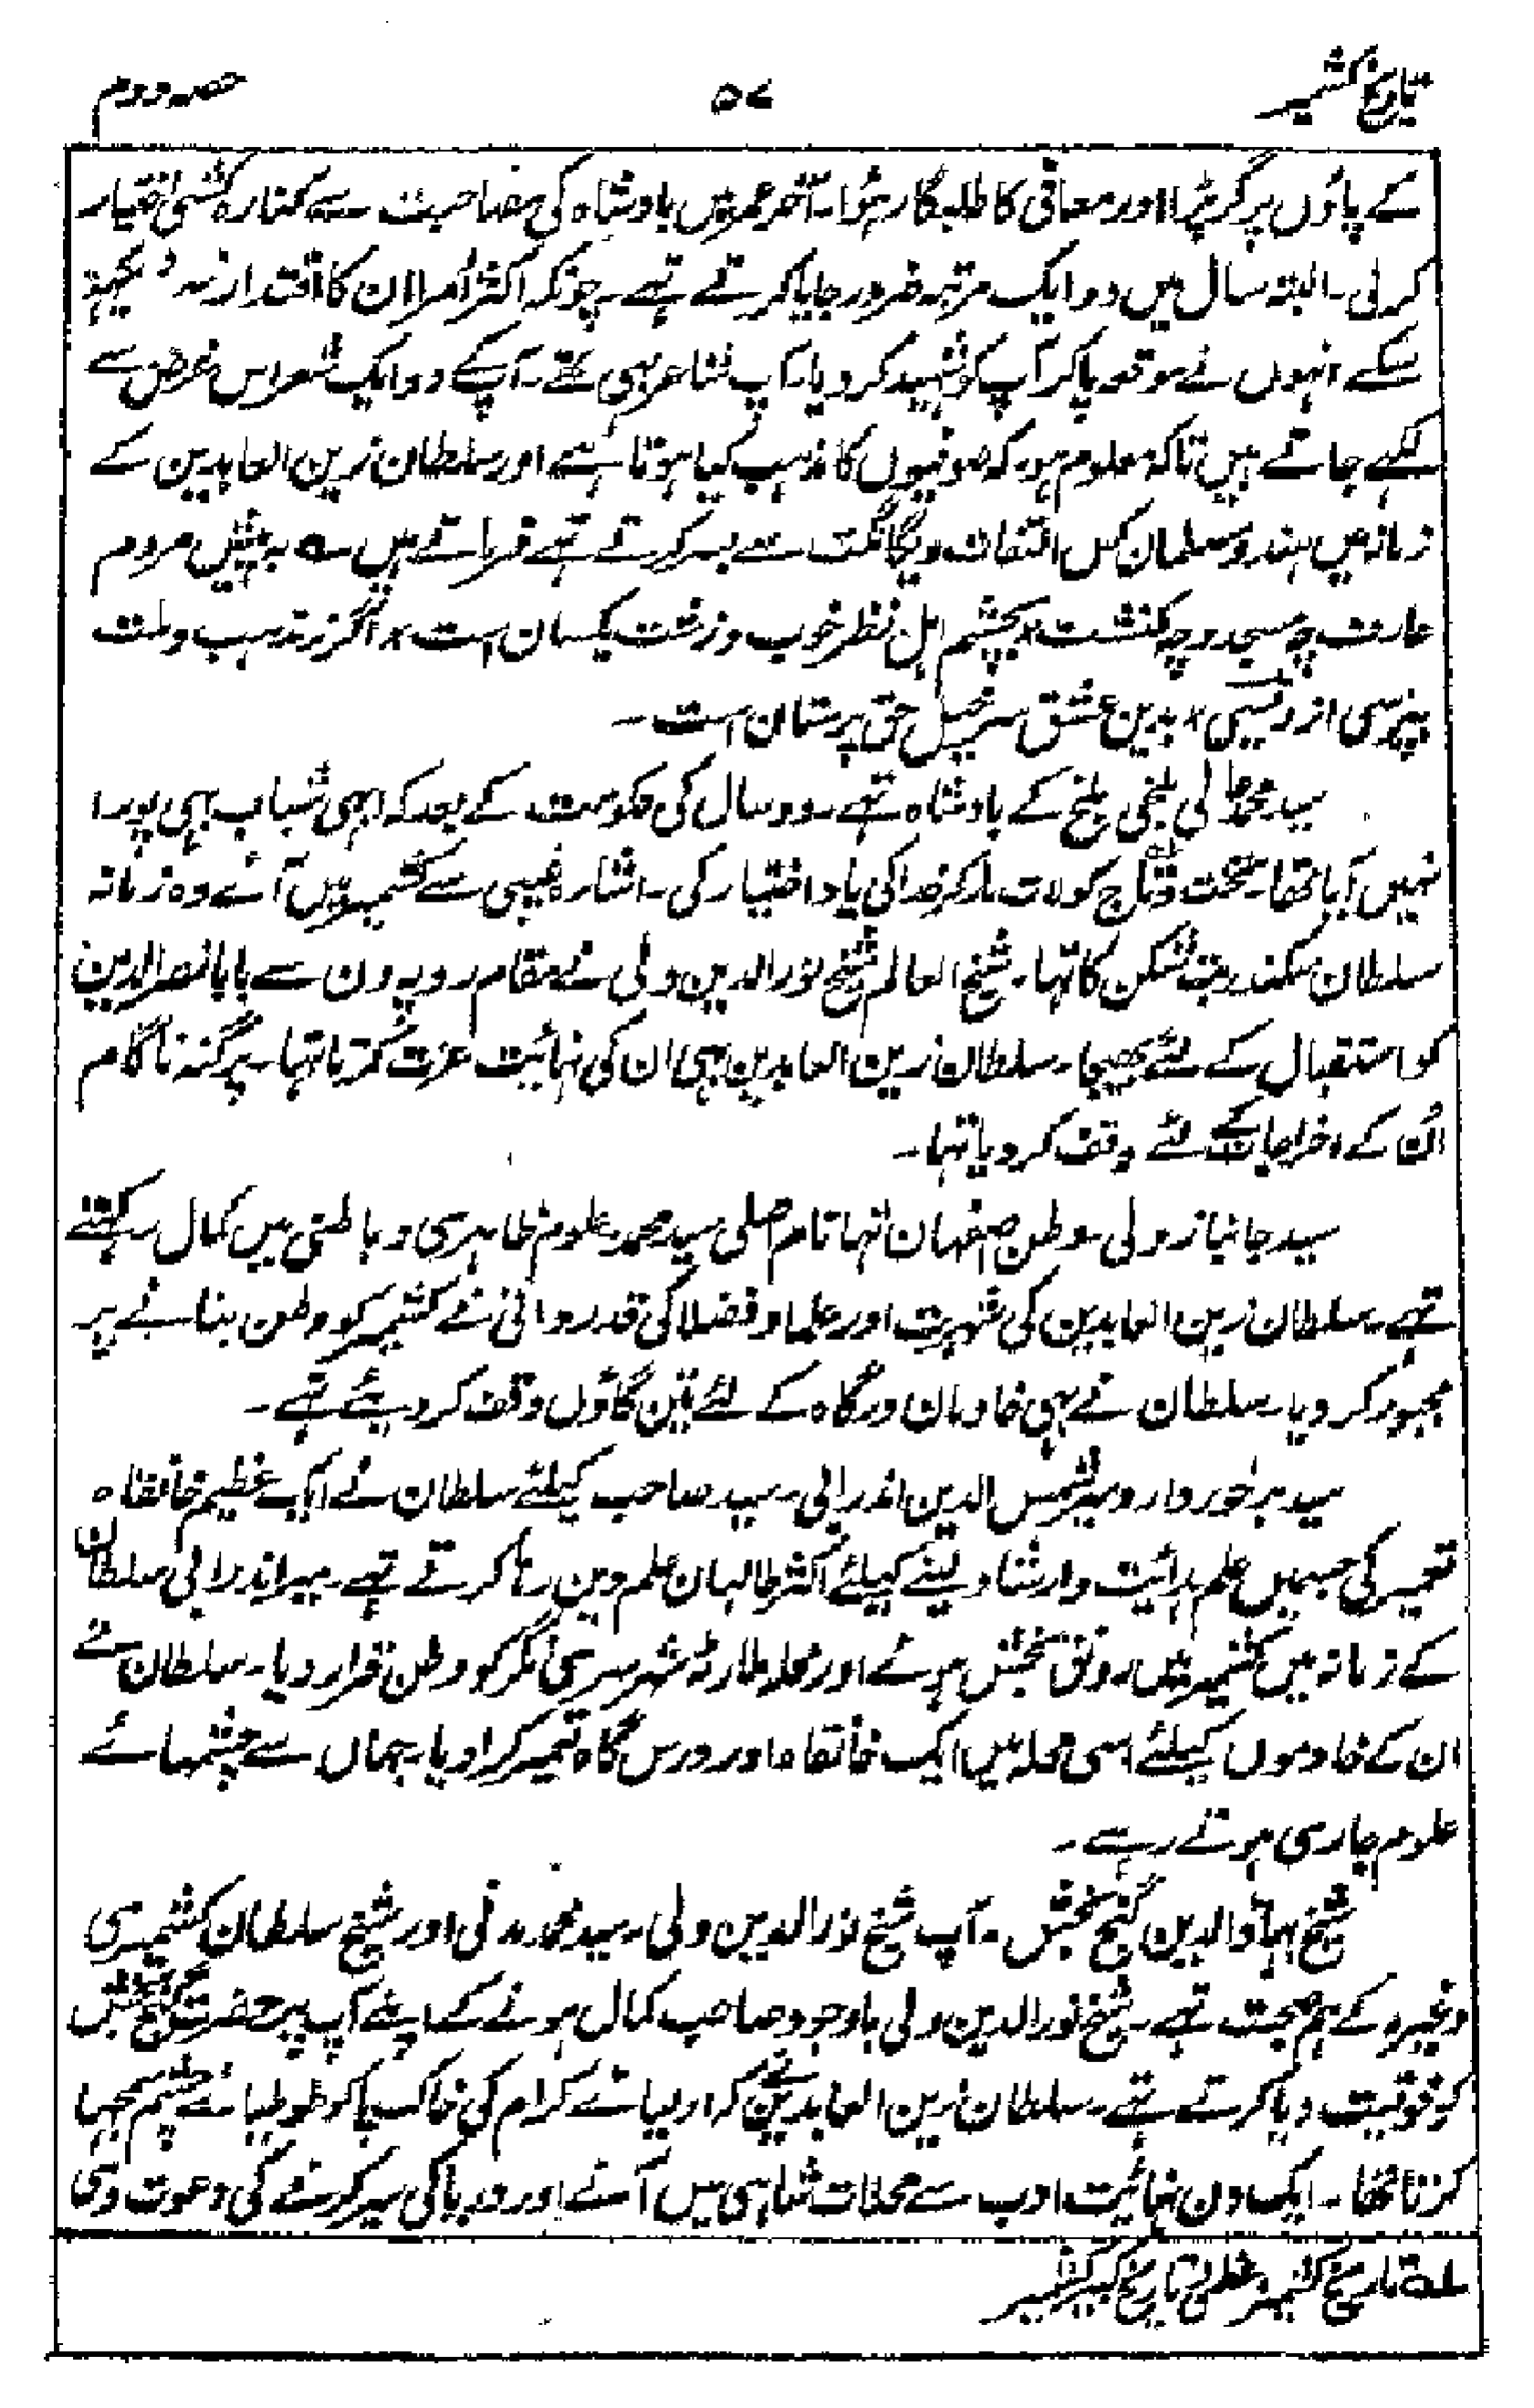 تاریخ کشمیر ۵۷ حصہ دوم
کے پاؤں پر گر پڑا اور معافی کا طلبگار ہؤا۔ آخر عمر میں بادشاہ کی مصاحبت سے کنارہ کشی اختیار
کر لی۔ البتہ سال میں دو ایک مرتبہ ضرور جایا کرتے تہے۔ چونکہ اکثر اُمرا ان کا اقتدار نہ دیکہہ
سکے انہوں نے موقعہ پا کر آپ کو شہید کر دیا۔ آپ شاعر بہی تھے۔ آپکے دو ایک شعر اس غرض سے
لکہے جاتے ہیں تاکہ معلوم ہو۔ کہ صوفیوں کا مذہب کیا ہوتا ہے اور سلطان زین العابدین کے
زمانہ میں ہندو مسلمان کس التفات و یگانگت سے بسر کرتے تہے فرماتے ہیں ؎ بہ پیش مردم
عارف چہ مسجد و چہ کنشت × بچشم اہل نظر خوب و زشت یکسان است × اگر ز مذہب و ملت
بپرسی از ویسی × بدین عشق سرخیل حق پرستان است۔
سید محمد عالی بلخی بلخ کے بادشاہ تہے۔ دو سال کی حکومت کے بعد کہ ابہی شباب بہی پورا
نہیں آیا تھا۔ تخت و تاج کو لات مار کر خدا کی یاد اختیار کی۔ اشارہ غیبی سے کشمیر میں آئے وہ زمانہ
سلطان سکندر بت شکن کا تہا۔ شیخ العالم شیخ نور الدین ولی نے مقام روپہ ون سے بابا نصر الدین
کو استقبال کے لئے بھیجا۔ سلطان زین العابدین بہی ان کی نہائیت عزت کرتا تہا۔ پرگنہ ناگام
اُن کے اخراجات کے لئے وقف کر دیا تہا۔
سید جانباز ولی۔ وطن صفہان تہا نام اصلی سید محمد علوم ظاہری و باطنی میں کمال رکہتے
تہے۔ سلطان زین العابدین کی شہرت اور علما و فضلا کی قدردانی نے کشمیر کو وطن بنانے پر
مجبور کر دیا۔ سلطان نے بہی خادمان درگاہ کے لئے تین گاؤں وقف کر دیئے تہے۔
سید برخوردار و میر شمس الدین اندرابی۔ سید صاحب کیلئے سلطان نے ایک عظیم خانقاہ
تعمیر کی جسمیں علم ہدائیت و ارشاد لینے کیلئے اکثر طالبان علم دین رہا کرتے تہے۔ میر اندرابی سلطان
کے زمانہ میں کشمیر میں رونق بخش ہوئے اور محلہ ملارٹہ شہر سرینگر کو وطن قرار دیا۔ سلطان نے
ان کے خادموں کیلئے اسی محلہ میں ایک خانقاہ اور درس گاہ تعمیر کرا دیا۔ جہاں سے چشمہائے
علوم جاری ہوتے رہے۔
شیخ بہاؤالدین گنج بخش۔ آپ شیخ نور الدین ولی۔ سید محمد مدنی اور شیخ سلطان کشمیری
وغیرہ کے ہم صحبت تہے۔ شیخ نور الدین ولی باوجود صاحب کمال ہونے کے اپنے آپ پر حضرت گنج بخش
کو فوقیت دیا کرتے تہے۔ سلطان زین العابدین نے کہ اولیائے کرام کی خاک پا کو طوطیائے چشم سمجہا
کرتا تھا۔ ایک دن نہائیت ادب سے محلات شاہی میں آنے اور دریا کی سیر کرنے کی دعوت دی
لہ تاریخ کشمیر اعظمی و تاریخ کبیر کشمیر